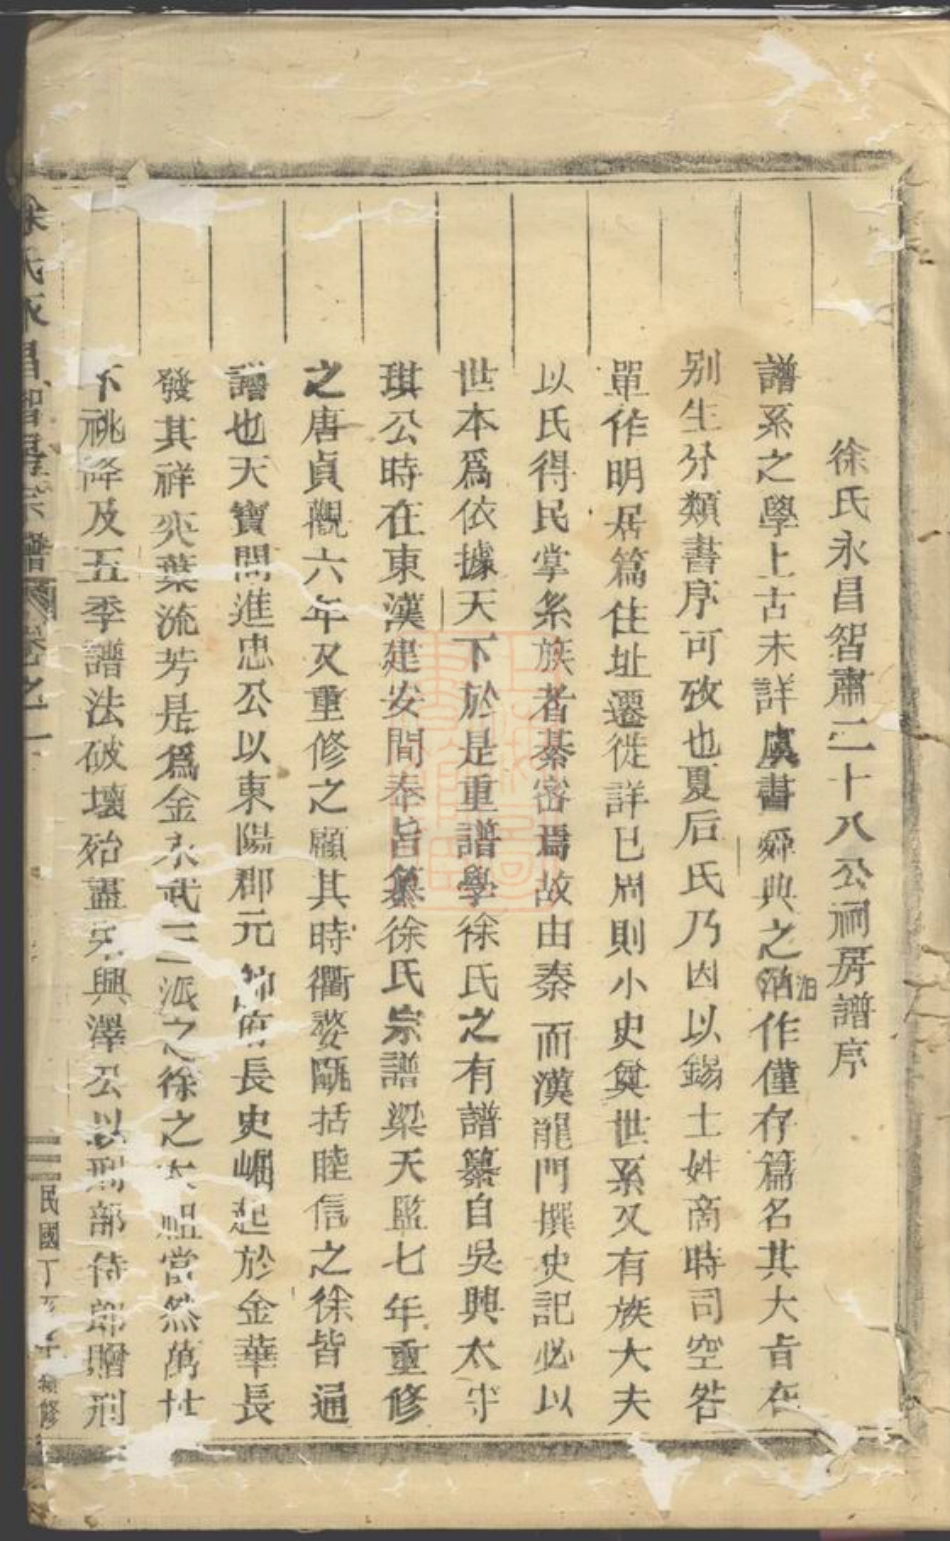 徐氏永昌智肅二十八公祠房譜序
譜系之學上古未詳虞書舜典之汨作僅存篇名其大旨在
别生分類書序可攷也夏后氏乃因以錫土姓商時司空咎
單作明居篇住址遷徙詳已周則小史奠世系又有族大夫
以氏得民掌系族者綦密焉故由秦而漢龍門撰史記必以
世本爲依據天下於是重譜學徐氏之有譜纂自吳興太守
琪公時在東漢建安間奉旨纂徐氏宗譜梁天監七年重修
之唐貞觀六年又重修之顧其時衢婺甌括睦信之徐皆通
譜也天寶間進忠公以東陽郡元帥府長史崛起於金華長
發其祥奕葉流芳是爲金永武三派之徐之太祖當然萬世
不祧降及五季譜法破壞殆盡宋興澤公以刑部侍郎贈刑
徐氏永昌智房宗譜 卷之一
民國丁亥 修